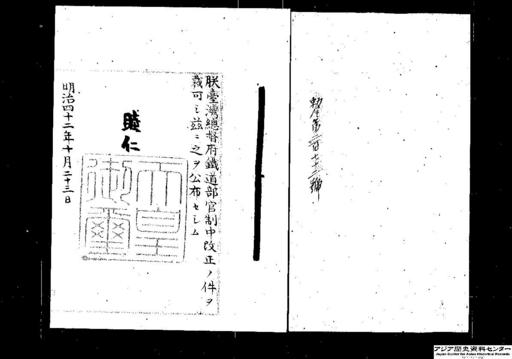 勅令第二百七十三號
朕臺灣總督府鐵道部官制中改正ノ件ヲ
裁可シ茲ニ之ヲ公布セシム
睦仁
天皇御璽
明治四十二年十月二十三日
アジア歴史資料センター
Japan Center for Asian Historical Records